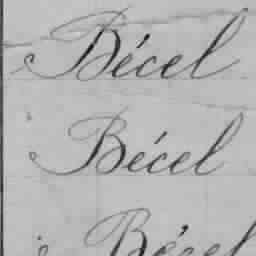 Bécel
Bécel
Bécel